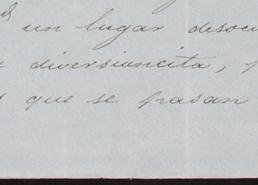 un lugar desocu
diversioncita, p
que se pasan